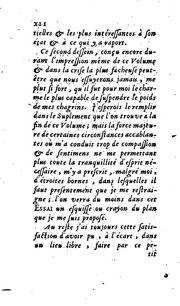 XII
tielles & les plus intéressantes à son
état & à ce qui y a raport.
Ce second dessein, conçu encore du-
rant l'impression même de ce Volume
& dans la crise la plus facheuse peut-
être que nous essuyerons jamais, me
plut si fort, qu'il fut pour moi le char-
me le plus capable de suspendre le poids
de mes chagrins. J'esperois le remplir
dans le Suplement que l'on trouve à la
fin de ce Volume; mais la force majeu-
re de certaines circonstances accablan-
tes où m'a conduit trop de compassion
& de sentimens ne me permettant
plus toute la tranquillité d'esprit né-
cessaire, m'y a prescrit, malgré moi,
d'étroites bornes, dans lesquelles il
faut présentement que je me restrai-
gne. L'on verra du moins dans cet
ESSAI un esquisse ou crayon du plan
que je me suis proposé.
Au reste j'ai toujours cette satis-
faction d'avoir pu, à l'écart, dans
un lieu libre, faire par ce pe-
tit